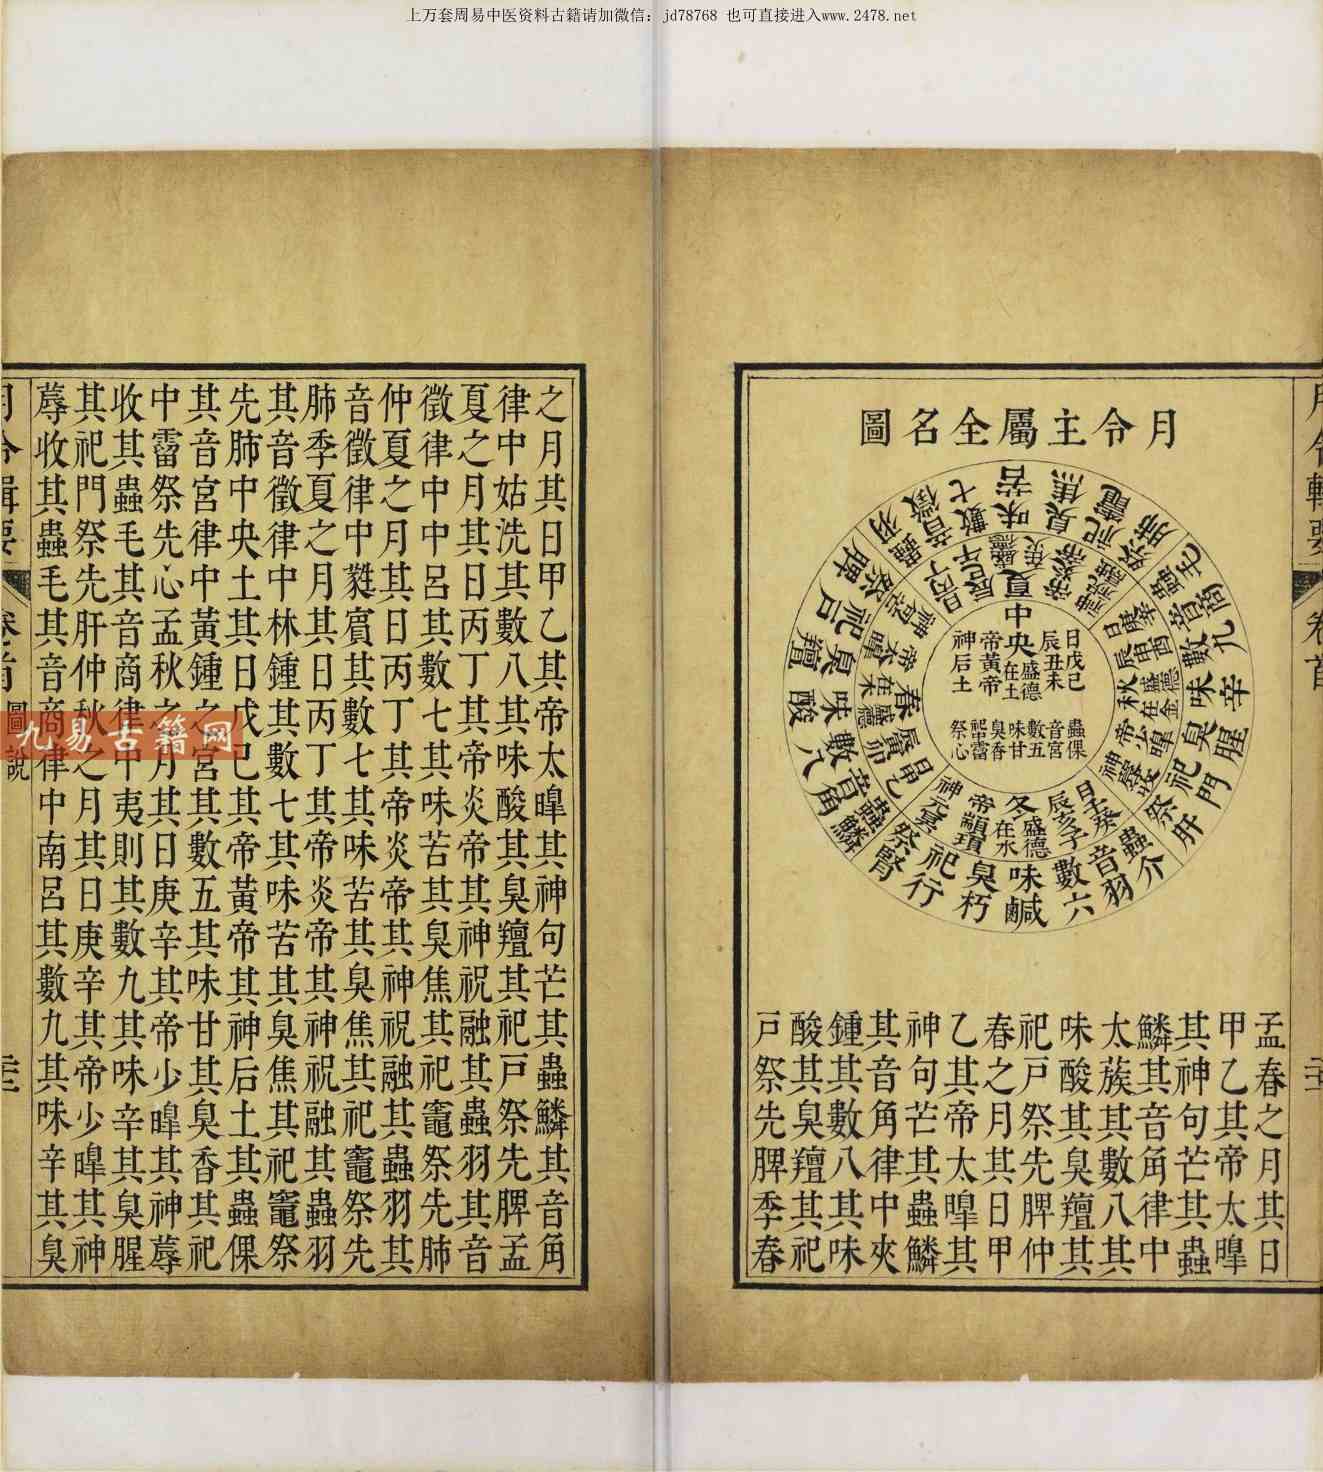 上万套周易中医资料古籍请加微信：jd78768 也可直接进入www.2478.net
月令主屬全名圖
中央
日戊己
辰丑未
盛德在土
帝黃帝
神后土
蟲倮
音宮
數五
味甘
臭香
祀中霤
祭心
夏
日丙丁
帝炎帝
神祝融
蟲羽
音徵
數七
味苦
臭焦
祀竈
祭肺
秋
盛德在金
日庚辛
辰申酉
帝少暤
神蓐收
蟲毛
音商
數九
味辛
臭腥
祀門
祭肝
冬
盛德在水
日壬癸
辰亥子
帝顓頊
神元冥
蟲介
音羽
數六
味鹹
臭朽
祀行
祭腎
春
盛德在木
日甲乙
辰寅卯
蟲鱗
音角
數八
味酸
臭羶
祀戸
祭脾
孟春之月其日
甲乙其帝太暤
其神句芒其蟲
鱗其音角律中
太蔟其數八其
味酸其臭羶其
祀戸祭先脾仲
春之月其日甲
乙其帝太暤其
神句芒其蟲鱗
其音角律中夾
鍾其數八其味
酸其臭羶其祀
戸祭先脾季春
月令輯要
卷首
之月其日甲乙其帝太暤其神句芒其蟲鱗其音角
律中姑洗其數八其味酸其臭羶其祀戸祭先脾孟
夏之月其日丙丁其帝炎帝其神祝融其蟲羽其音
徵律中中呂其數七其味苦其臭焦其祀竈祭先肺
仲夏之月其日丙丁其帝炎帝其神祝融其蟲羽其
音徵律中蕤賓其數七其味苦其臭焦其祀竈祭先
肺季夏之月其日丙丁其帝炎帝其神祝融其蟲羽
其音徵律中林鍾其數七其味苦其臭焦其祀竈祭
先肺中央土其日戊己其帝黃帝其神后土其蟲倮
其音宮律中黃鍾之宮其數五其味甘其臭香其祀
中霤祭先心孟秋之月其日庚辛其帝少暤其神蓐
收其蟲毛其音商律中夷則其數九其味辛其臭腥
其祀門祭先肝仲秋之月其日庚辛其帝少暤其神
蓐收其蟲毛其音商律中南呂其數九其味辛其臭
月令輯要
卷首
圖說
九易古籍网